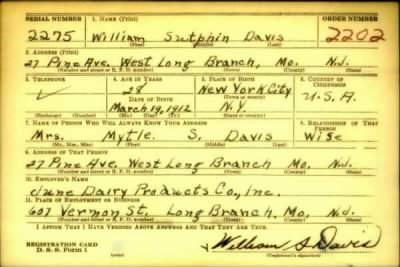 SERIAL NUMBER 1. NAME (Print) ORDER NUMBER
2275 William Sutphin Davis 2202
(First) (Middle) (Last)
2. ADDRESS (Print)
27 Pine Ave. West Long Branch, Mo. N.J.
(Number and street or R. F. D. number) (Town) (County) (State)
3. TELEPHONE 4. AGE IN YEARS 5. PLACE OF BIRTH 6. COUNTRY OF CITIZENSHIP
28 New York City
(Town or county)
DATE OF BIRTH
March 19, 1912 N.Y. U.S.A.
(Exchange) (Number) (Mo.) (Day) (Yr.) (State or country)
7. NAME OF PERSON WHO WILL ALWAYS KNOW YOUR ADDRESS 8. RELATIONSHIP OF THAT PERSON
Mrs. Mytle S. Davis Wife
(Mr., Mrs., Miss) (First) (Middle) (Last)
9. ADDRESS OF THAT PERSON
27 Pine Ave. West Long Branch Mo. N.J.
(Number and street or R. F. D. number) (Town) (County) (State)
10. EMPLOYER'S NAME
June Dairy Products Co., Inc.
11. PLACE OF EMPLOYMENT OR BUSINESS
607 Vernon St. Long Branch, Mo. N.J.
(Number and street or R. F. D. number) (Town) (County) (State)
I AFFIRM THAT I HAVE VERIFIED ABOVE ANSWERS AND THAT THEY ARE TRUE.
REGISTRATION CARD
D. S. S. Form 1
William S Davis